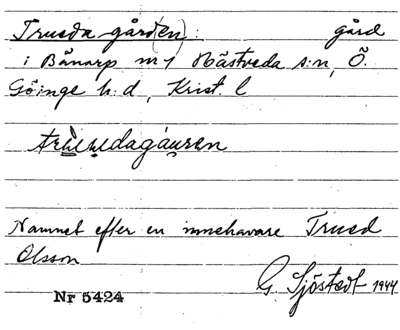 Trueda gård(en): gård
i Bånarp nr 1 Hästveda s:n, Ö.
Göinge h:d, Krist. l
Namnet efter en innehavare Trued
Olsson
G. Sjöstedt 1944
Nr 5424